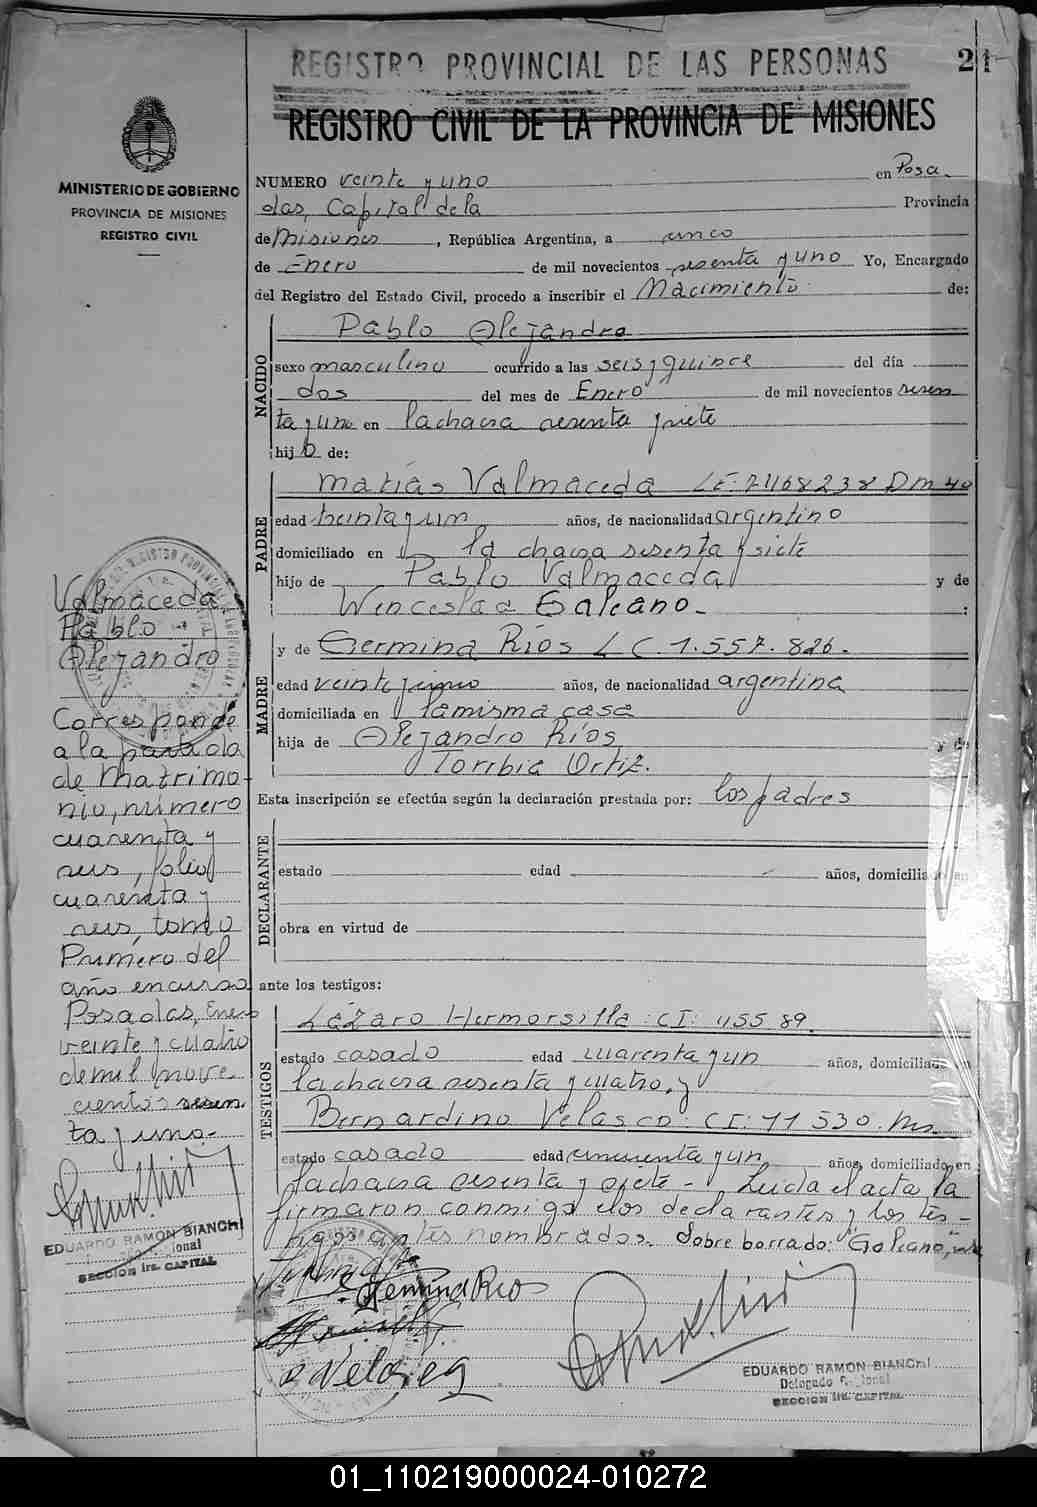 REGISTRO PROVINCIAL DE LAS PERSONAS
21
REGISTRO CIVIL DE LA PROVINCIA DE MISIONES
MINISTERIO DE GOBIERNO
PROVINCIA DE MISIONES
REGISTRO CIVIL
NUMERO veinte y uno en Posa
das, Capital de la Provincia
de Misiones, República Argentina, a cinco
de Enero de mil novecientos sesenta y uno Yo, Encargado
del Registro del Estado Civil, procedo a inscribir el Nacimiento de:
NACIDO
Pablo Alejandro
sexo masculino ocurrido a las seis y quince del día
dos del mes de Enero de mil novecientos sesen
ta y uno en la chacra sesenta y siete
hijo de:
PADRE
Matías Valmaceda LE: 7468238 Dm 40
edad treinta y un años, de nacionalidad argentino
domiciliado en la chacra sesenta y siete
hijo de Pablo Valmaceda y de
Wenceslada Galeano :
MADRE
y de Germina Ríos L C. 1.557.826.
edad veinte y cinco años, de nacionalidad argentina
domiciliada en la misma casa
hija de Alejandro Ríos y de
Toribia Ortiz.
Esta inscripción se efectúa según la declaración prestada por: los padres
DECLARANTE
estado edad años, domiciliado en
obra en virtud de
ante los testigos:
TESTIGOS
Lázaro Hermosilla: CI: 45589.
estado casado edad cuarenta y un años, domiciliado en
la chacra sesenta y cuatro, y
Bernardino Velasco: CI: 11530. Ms.
estado casado edad cincuenta y un años, domiciliado en
la chacra sesenta y siete - Leida el acta la
firmaron conmigo los declarantes y los tes-
tigos antes nombrados. Sobre borrado: "Galeano",
Germina Rios
Velasco
EDUARDO RAMON BIANCHI
Delegado
SECCION 1ra. CAPITAL
Valmaceda
Pablo
Alejandro
Corresponde
a la partida
de Matrimo
nio, número
cuarenta y
seis, folio
cuarenta y
seis, tomo
Primero del
año en curso
Posadas, Enero
veinte y cuatro
de mil nove
cientos sesen
ta y uno.-
EDUARDO RAMON BIANCHI
SECCION 1ra. CAPITAL
01_110219000024-010272